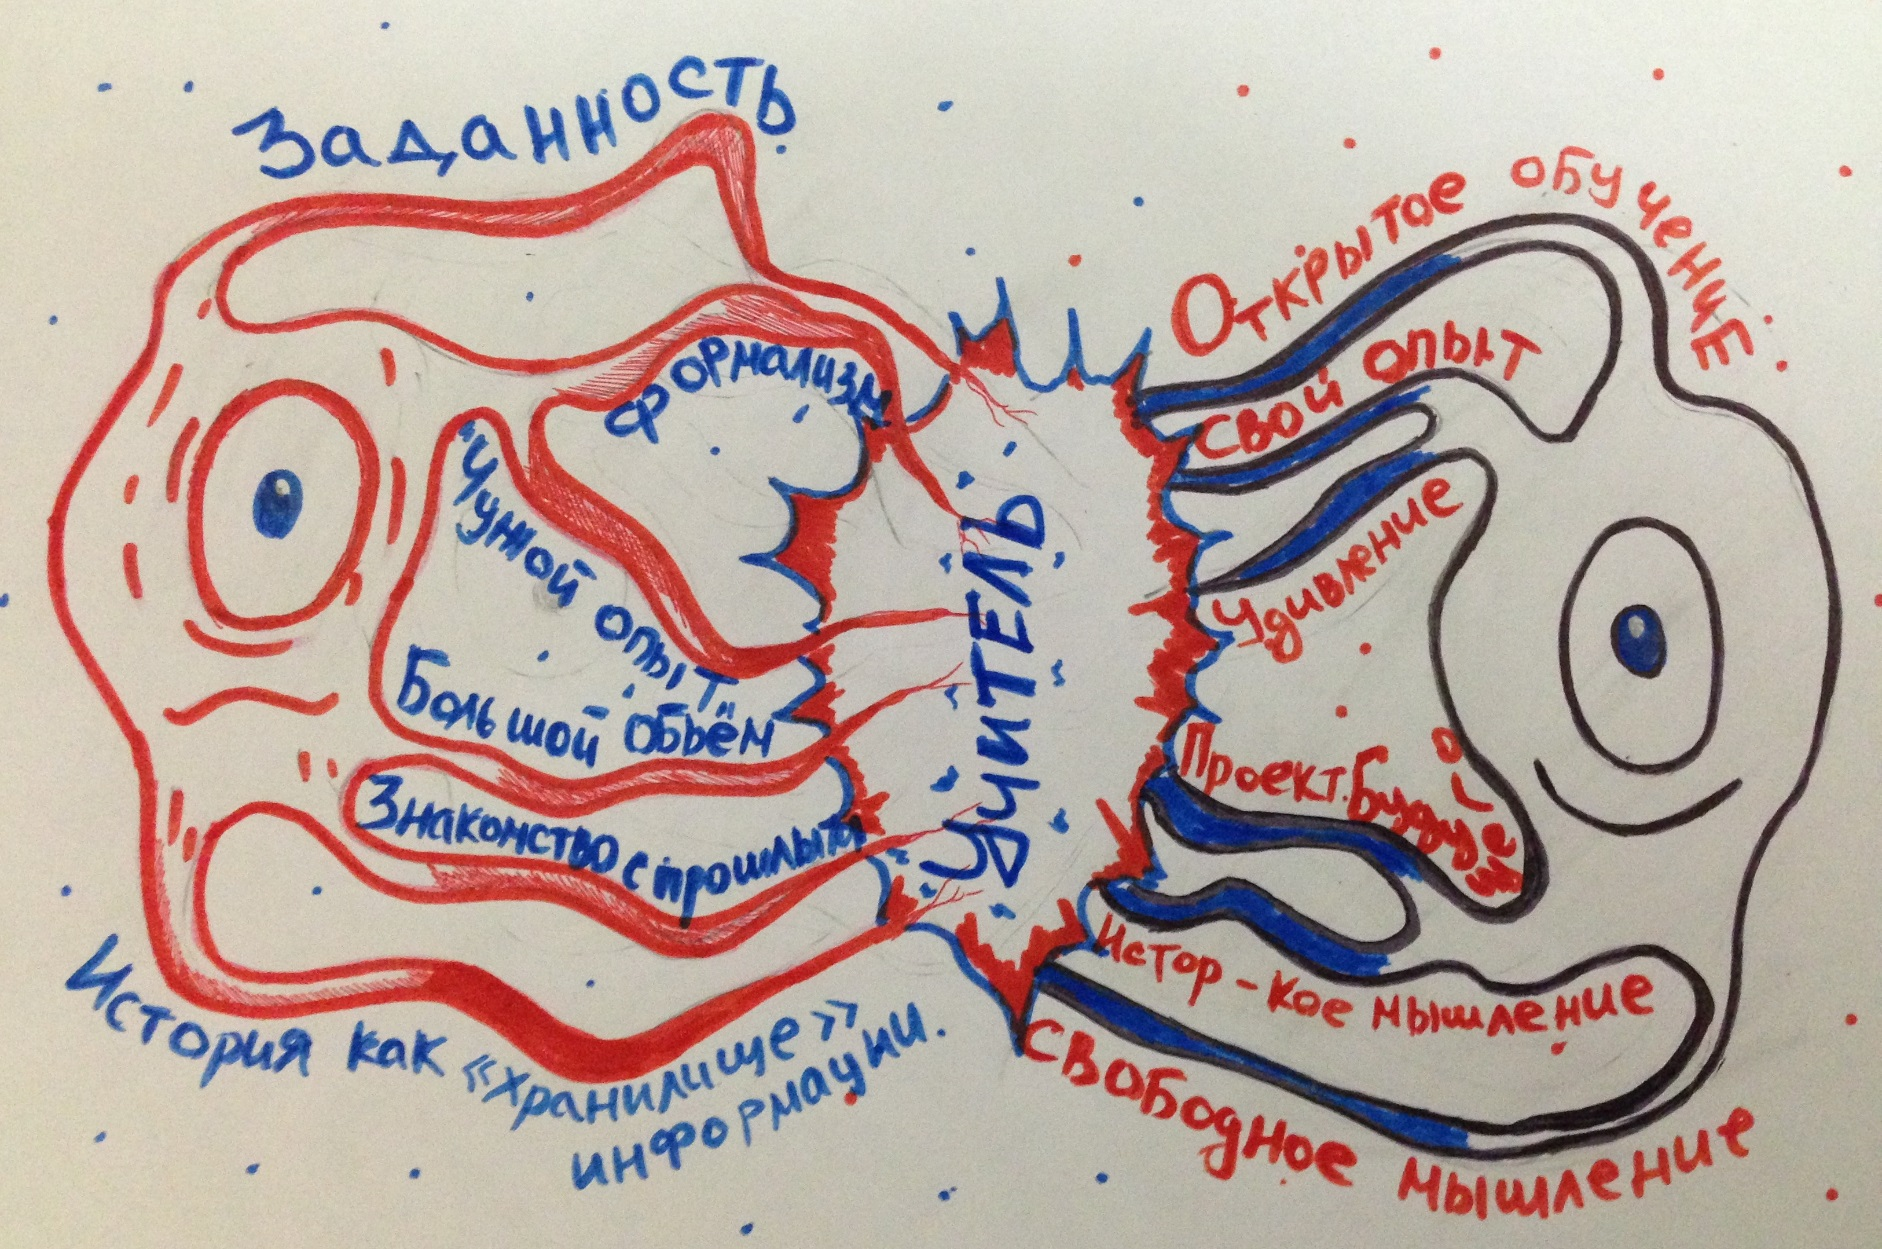 Заданность
формализм
"Чужой опыт"
Большой объём
Знакомство с прошлым
История как «хранилище»
информации.
Учитель
Открытое обучение
Свой опыт
Удивление
Проект. Будущее
Истор-кое мышление
Свободное мышление